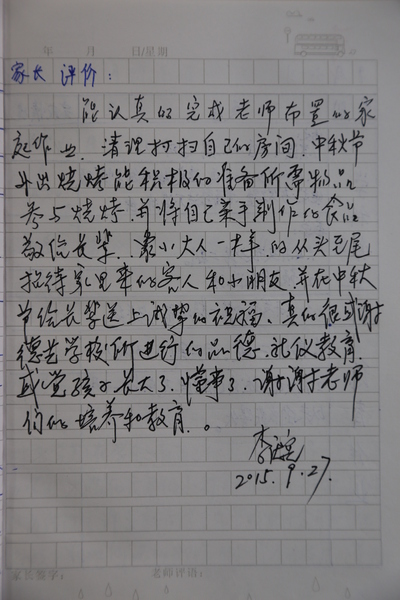 年 月 日/星期
家长评价:
能认真的完成老师布置的家
庭作业、清理打扫自己的房间、中秋节
外出烧烤能积极的准备所需物品
参与烧烤、并将自己亲手制作的食品
敬给长辈、像小大人一样、的从头至尾
招待家里来的客人和小朋友、并在中秋
节给长辈送上诚挚的祝福、真的很感谢
德兰学校所进行的品德、礼仪教育、
感觉孩子长大了、懂事了、谢谢老师
们的培养和教育。
2015.9.27.
家长签字: 老师评语: